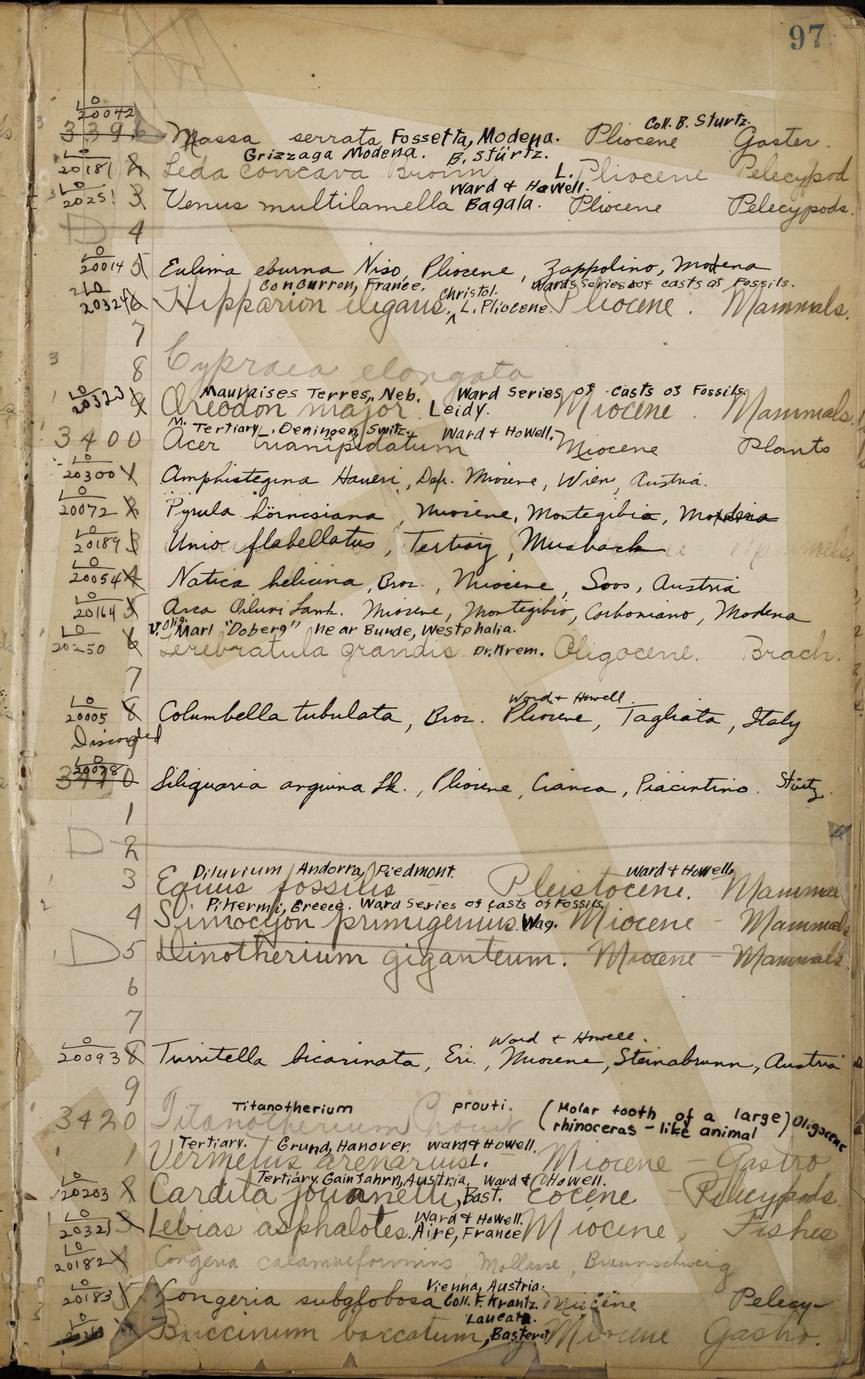 97
LO
20042
339 Massa serrata Fossetta, Modena. Pliocene Coll. B. Sturtz. Gaster.
Grizzaga Modena. B. Stürtz.
LO
20181 Leda concava Bronn, L. Pliocene Pelecypod
Ward & Howell.
LO
20251 3 Venus multilamella Bagala. Pliocene Pelecypods.
D 4
LO
20014 5 Eulima eburna Niso, Pliocene, Zappolino, Modena
Concurron, France. Christol. Wards Series of casts of Fossils.
LO
20324 6 Hipparion elegans, L. Pliocene Pliocene. Mammals.
7
8 Cypraea elongata
Mauvaises Terres, Neb. Ward Series of casts of Fossils.
LO
20323 9 Oreodon major Leidy. Miocene. Mammals.
M. Tertiary, Oeningen, Switz. Ward & Howell.
3400 Acer trianipidatum Miocene Plants
LO
20300 Amphistegina Haueri, Dep. Miocene, Wien, Austria.
LO
20072 Pyrula hörnesiana, Miocene, Montegibio, Modena
LO
20189 3 Unio flabellatus, Tertiary, Musbach
LO
20054 4 Natica helicina, Broc., Miocene, Soos, Austria
LO
20164 5 Arca Diluvi Lamk. Miocene, Montegibio, Corboniano, Modena
V. Olig. Marl "Doberg" near Bunde, Westphalia.
LO
6 Terebratula grandis. Dr. Krem. Oligocene. Brach.
7
Ward & Howell
LO
20005 8 Columbella tubulata, Broc. Pliocene, Tagliata, Italy
Discarded 9
LO
20098
3410 Siliquaria anguina Lk., Pliocene, Cianca, Piacintino. Stürtz.
1
D 2
Diluvium Andorra, Piedmont. Ward & Howell.
3 Equus fossilis - Pleistocene. Mammal
Pikermi, Greece. Ward Series of casts of Fossils.
4 Simocyon primigenius. Wag. Miocene - Mammals
D 5 Dinotherium giganteum. Miocene - Mammals.
6
7
Ward & Howell.
LO
20093 8 Turritella bicarinata, Eri., Miocene, Steinabrunn, Austria
9
Titanotherium prouti. (Molar tooth of a large rhinoceras - like animal) Oligocene
3420 Titanotherium Prouti
Tertiary. Grund, Hanover. Ward & Howell.
1 Vermetus arenarius L. Miocene - Gastro
Tertiary. Gainfahrn, Austria, Ward & Howell.
LO
20203 2 Cardita jouanetti, Bast. Eocene - Pelecypods.
Ward & Howell.
LO
20321 3 Lebias asphalotes. Aire, France Miocene, Fishes
LO
20182 4 Congeria Mollasse, Braunschweig
Vienna, Austria.
LO
20183 5 Kongeria subglobosa Coll. F. Krantz. Miocene Pelecy-
Laucata.
Buccinum baccatum, Bastero Miocene Gastro.